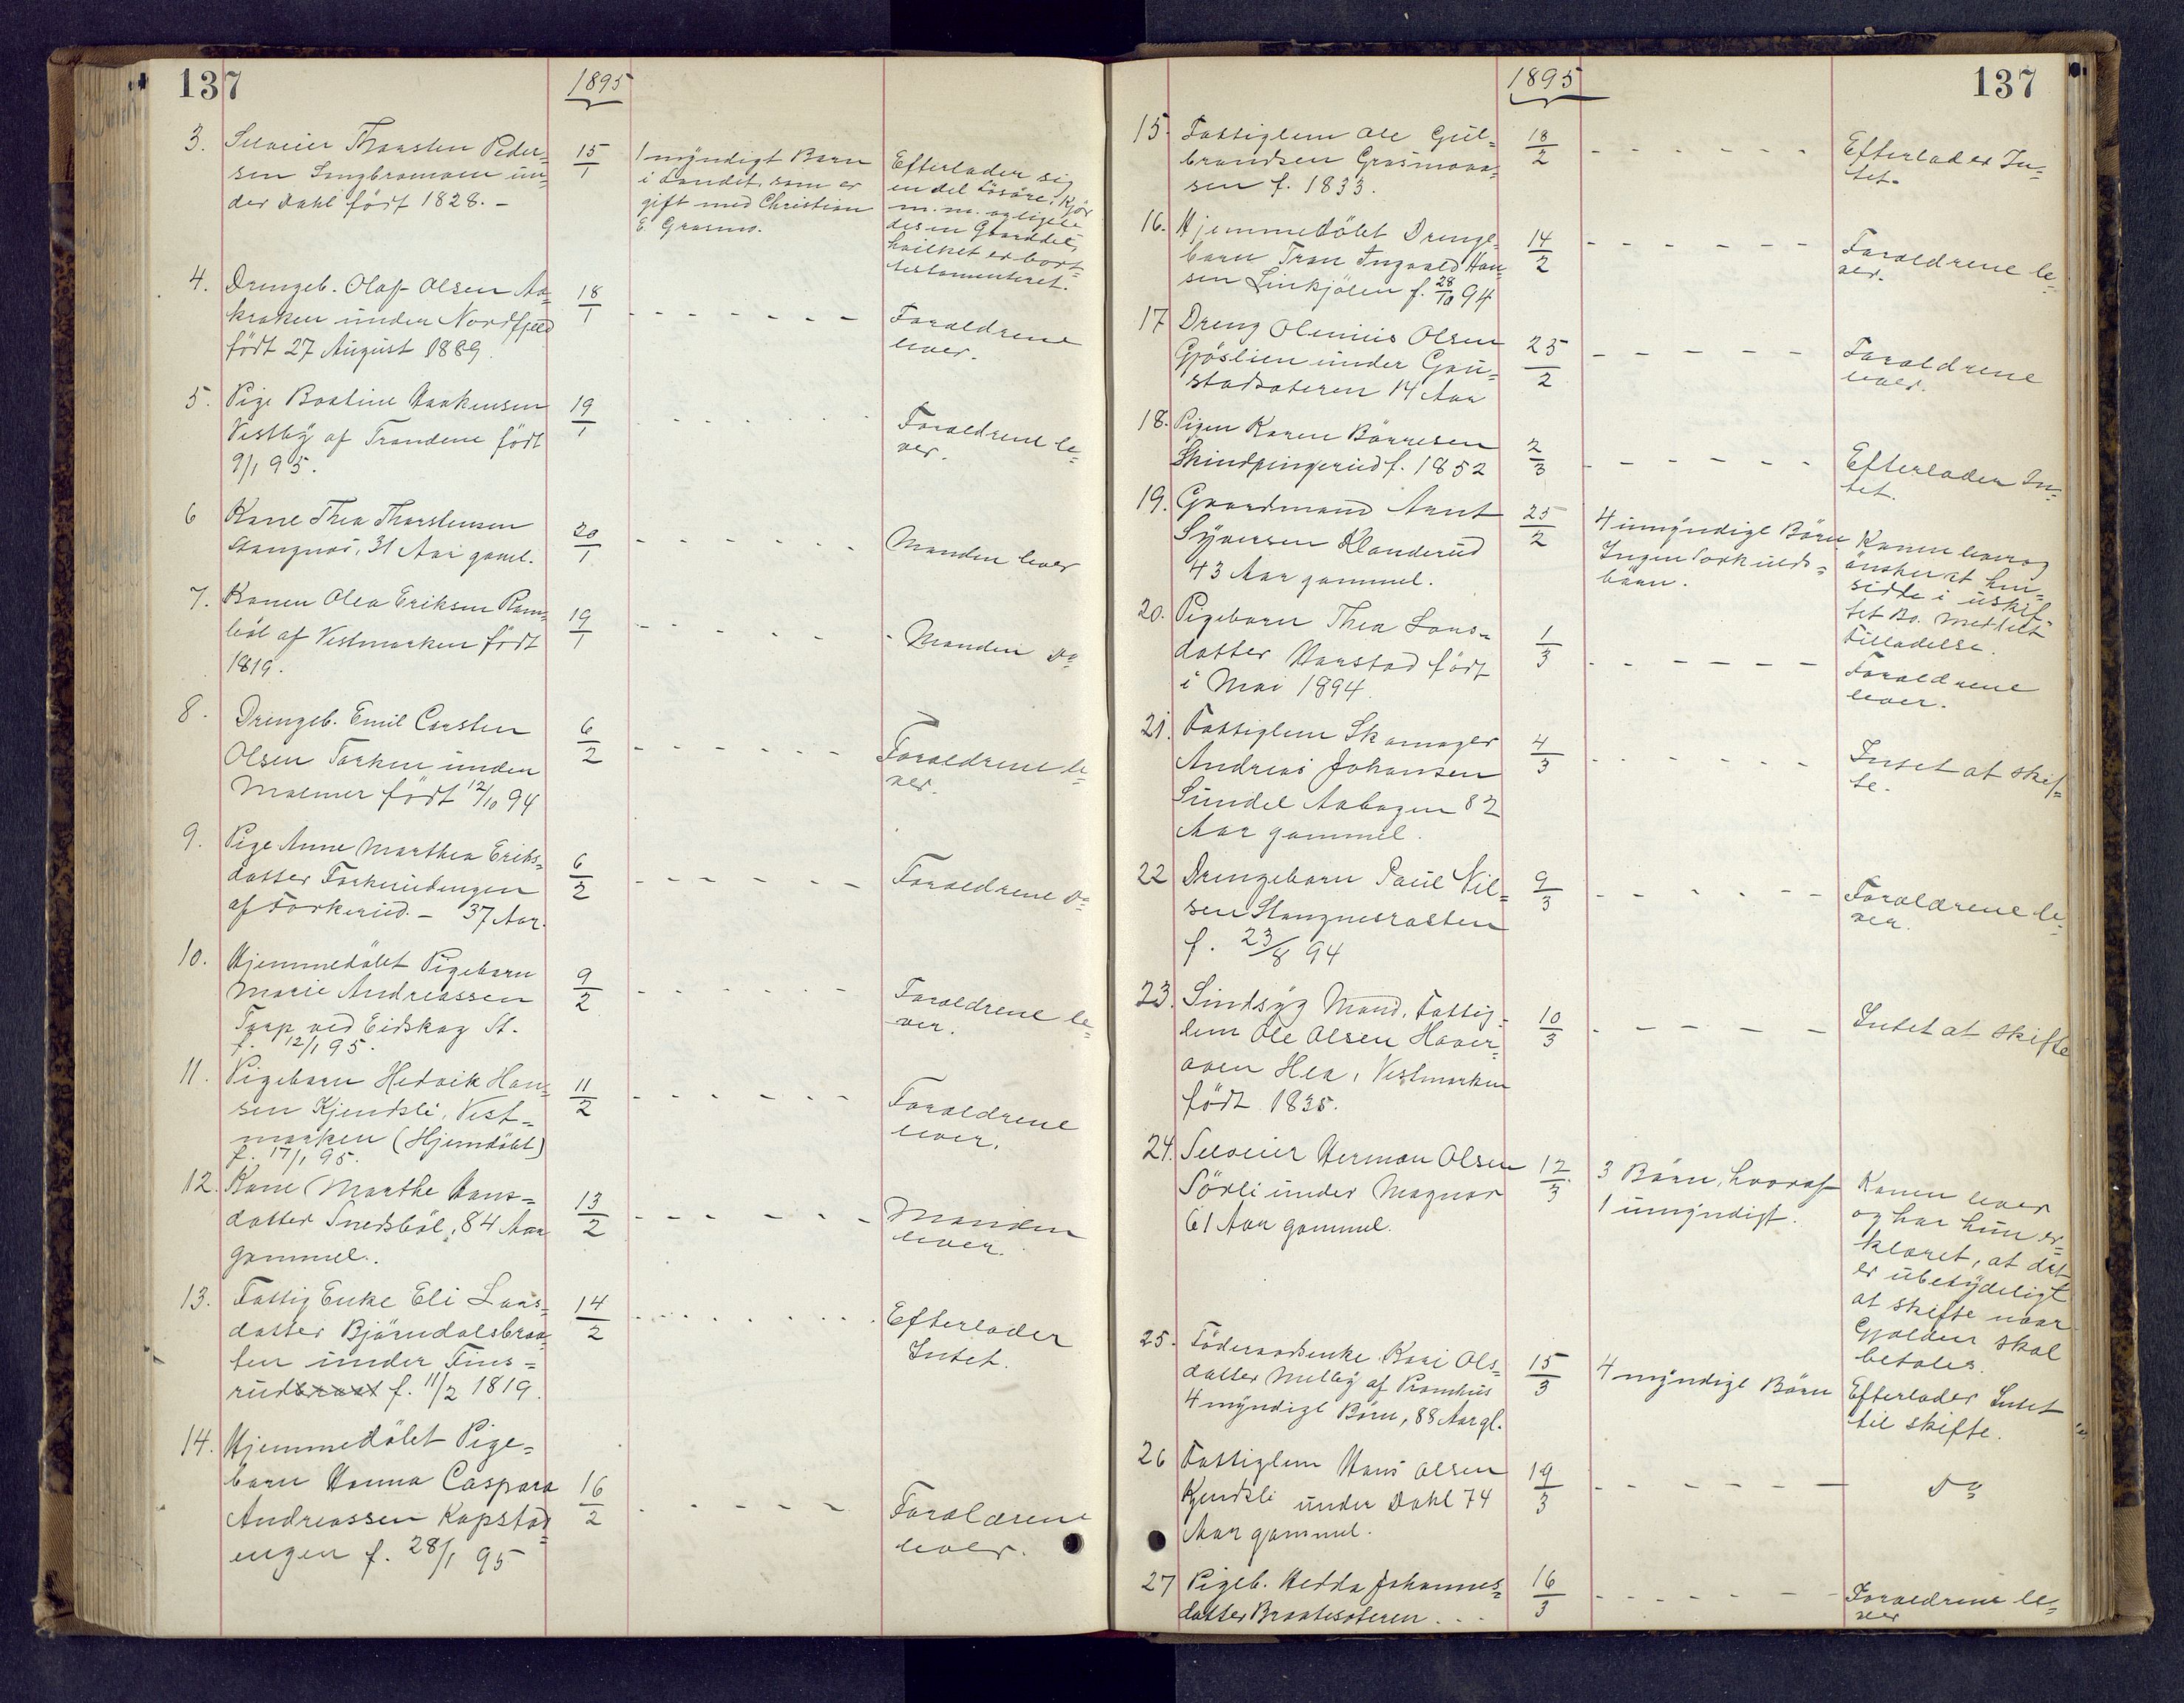 137
1895
3. Selveier Thorsten Peder=
sen Langbromoen un=
der Dahl født 1828. -
15/1
1 myndigt Barn
i Landet, som er
gift med Christian
E. Grasmo.
Efterlader sig
en del Løsøre, Kjør
m. m. og ligele
des en Gaarddel,
hvilket er bort=
testamenteret.
4. Drengeb. Olaf Olsen Aa=
kroken under Nordfjeld
født 27 August 1889.
18/1
Forældrene
lever.
5. Pige Boatine Haakensen
Vestby af Trandem født
9/1 95.
19/1
Forældrene le=
ver.
6 Kone Thea Thorstensen
Stangnæs, 31 Aar gaml.
20/1
Manden lever
7. Konen Olea Eriksen Ram=
böl af Vestmarken født
1819.
19/1
Manden do
8. Drengeb. Emil Carsten
Olsen Torken under
Malmer født 12/10 94
6/2
Forældrene le=
ver.
9. Pige Anne Marthea Eriks=
datter Torkerudengen
af Torkerud. - 37 Aar.
6/2
Forældrene do
10. Hjemmedøbt Pigebarn
Marie Andreassen
Torp ved Eidskog St.
f. 12/1 95.
9/2
Forældrene le=
ver.
11. Pigebarn Hedvik Han=
sen Kjendsli, Vest=
marken (Hjemdøbt)
f. 17/1 95.
11/2
Forældrene
lever.
12. Kone Marthe Hans=
datter Snedsböl, 84 Aar
gammel.
13/2
Manden
lever.
13. Fattig Enke Eli Lars=
datter Björndalsbraa=
ten under Fins=
rud f. 11/2 1819.
14/2
Efterlader
Intet.
14. Hjemmedøbt Pige=
barn Hanna Caspara
Andreassen Kapstad=
engen f. 28/1 95
16/2
Forældrene
lever.
1895
137
15. Fattiglem Ole Gul=
brandsen Grasmoaa=
sen f. 1833.
18/2
Efterlader In=
tet.
16. Hjemmedøbt Drenge=
barn Tron Ingvald Han=
sen Linkjölen f. 28/10 94
14/2
Forældrene le=
ver.
17 Dreng Olenius Olsen
Gjöslien under Gau=
stadsæteren 14 Aar
25/2
Forældrene
lever.
18. Pigen Karen Börresen
Skindpingerud f. 1852
2/3
Efterlader In=
tet.
19. Gaardmand Arnt
Syversen Klanderud
43 Aar gammel.
25/2
4 umyndige Børn
Ingen Særkulds=
børn.
Konen lever og
ønsker at hen=
sidde i uskif=
tet Bo. Meddelt
Tilladelse.
20. Pigebarn Thea Lars=
datter Harstad født
i Mai 1894.
1/3
Forældrene
lever.
21. Fattiglem Skomager
Andreas Johansen
Sundel Aabogen 82
Aar gammel.
4/3
Intet at skif=
te.
22 Drengebarn Paul Nil=
sen Stangnesrasten
f. 23/8 94
9/3
Forældrene le=
ver.
23. Sindsyg Mand, Fattig=
lem Ole Olsen Haver=
aaen Hea, Vestmarken
født 1835.
10/3
Intet at skifte
24. Selveier Herman Olsen
Sörli under Magnor
61 Aar gammel.
12/3
3 Børn, hvoraf
1 umyndigt.
Konen lever
og har hun er=
klæret, at det
er ubetydeligt
at skifte naar
Gjælden skal
betales.
25. Föderaadsenke Kari Ols=
datter Melby af Pramhus
4 myndige Børn, 88 Aar gl.
15/3
4 myndige Børn
Efterlader Intet
til skifte.
26 Fattiglem Hans Olsen
Kjendsli under Dahl 74
Aar gammel.
19/3
do
27 Pigeb. Hedda Johannes=
datter Braatesæteren . . .
16/3
Forældrene le=
ver